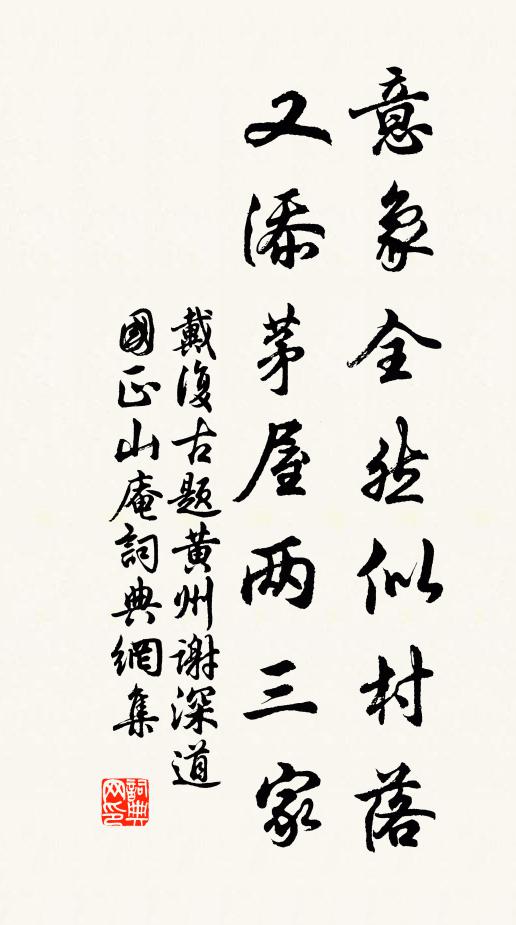 意象全然似村落
又添茅屋两三家
戴復古題黄州谢深道
國正山庵詞典網集
詞典
网印